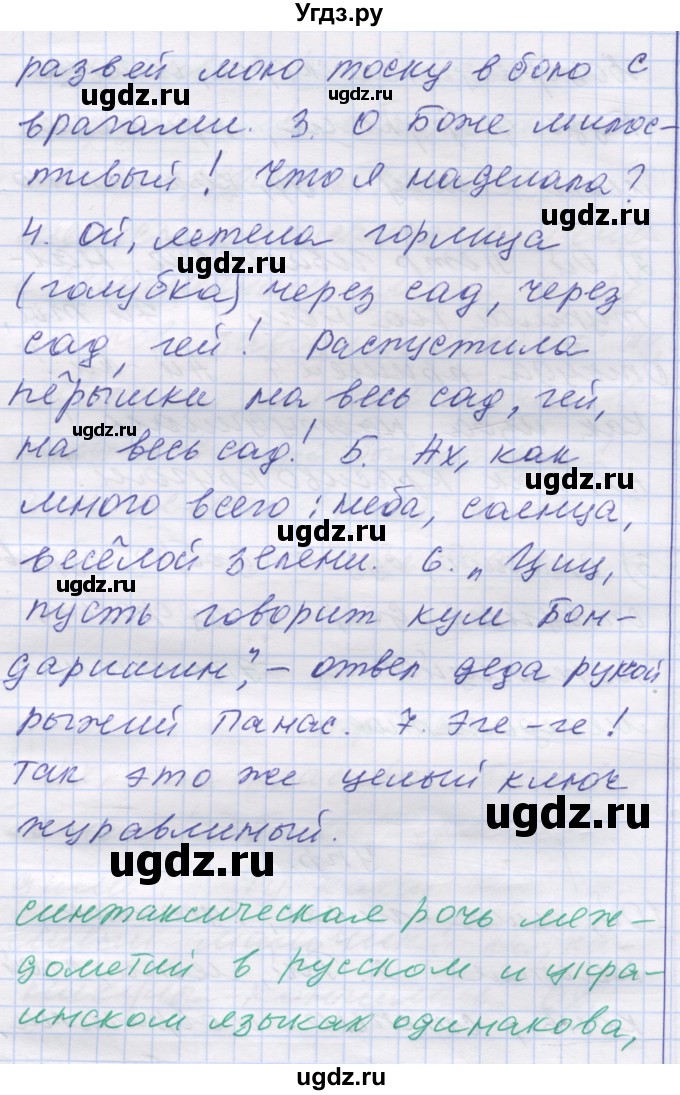 Угдз.ру
развей мою тоску в бою с
ugdz.ru ugdz.ru
врагами. 3. О Боже милос-
тивый! Что я наделала?
ugdz.ru
4. Ой, летела горлица
ugdz.ru
(голубка) через сад, через
сад, гей! Распустила
пёрышки на весь сад, гей,
ugdz.ru
на весь сад! 5. Ах, как
ugdz.ru
много всего: неба, солнца,
ugdz.ru
весёлой зелени. 6. „Циц,
ugdz.ru
пусть говорит кум Бон-
даришин", – отвел деда рукой
ugdz.ru
рыжий Панас. 7. Эге-ге!
так это же целый ключ
ugdz.ru
журавлиный.
ugdz.ru
синтаксическая рочь меж-
дометий в русском и укра-
инском языках одинакова,
ugdz.ru